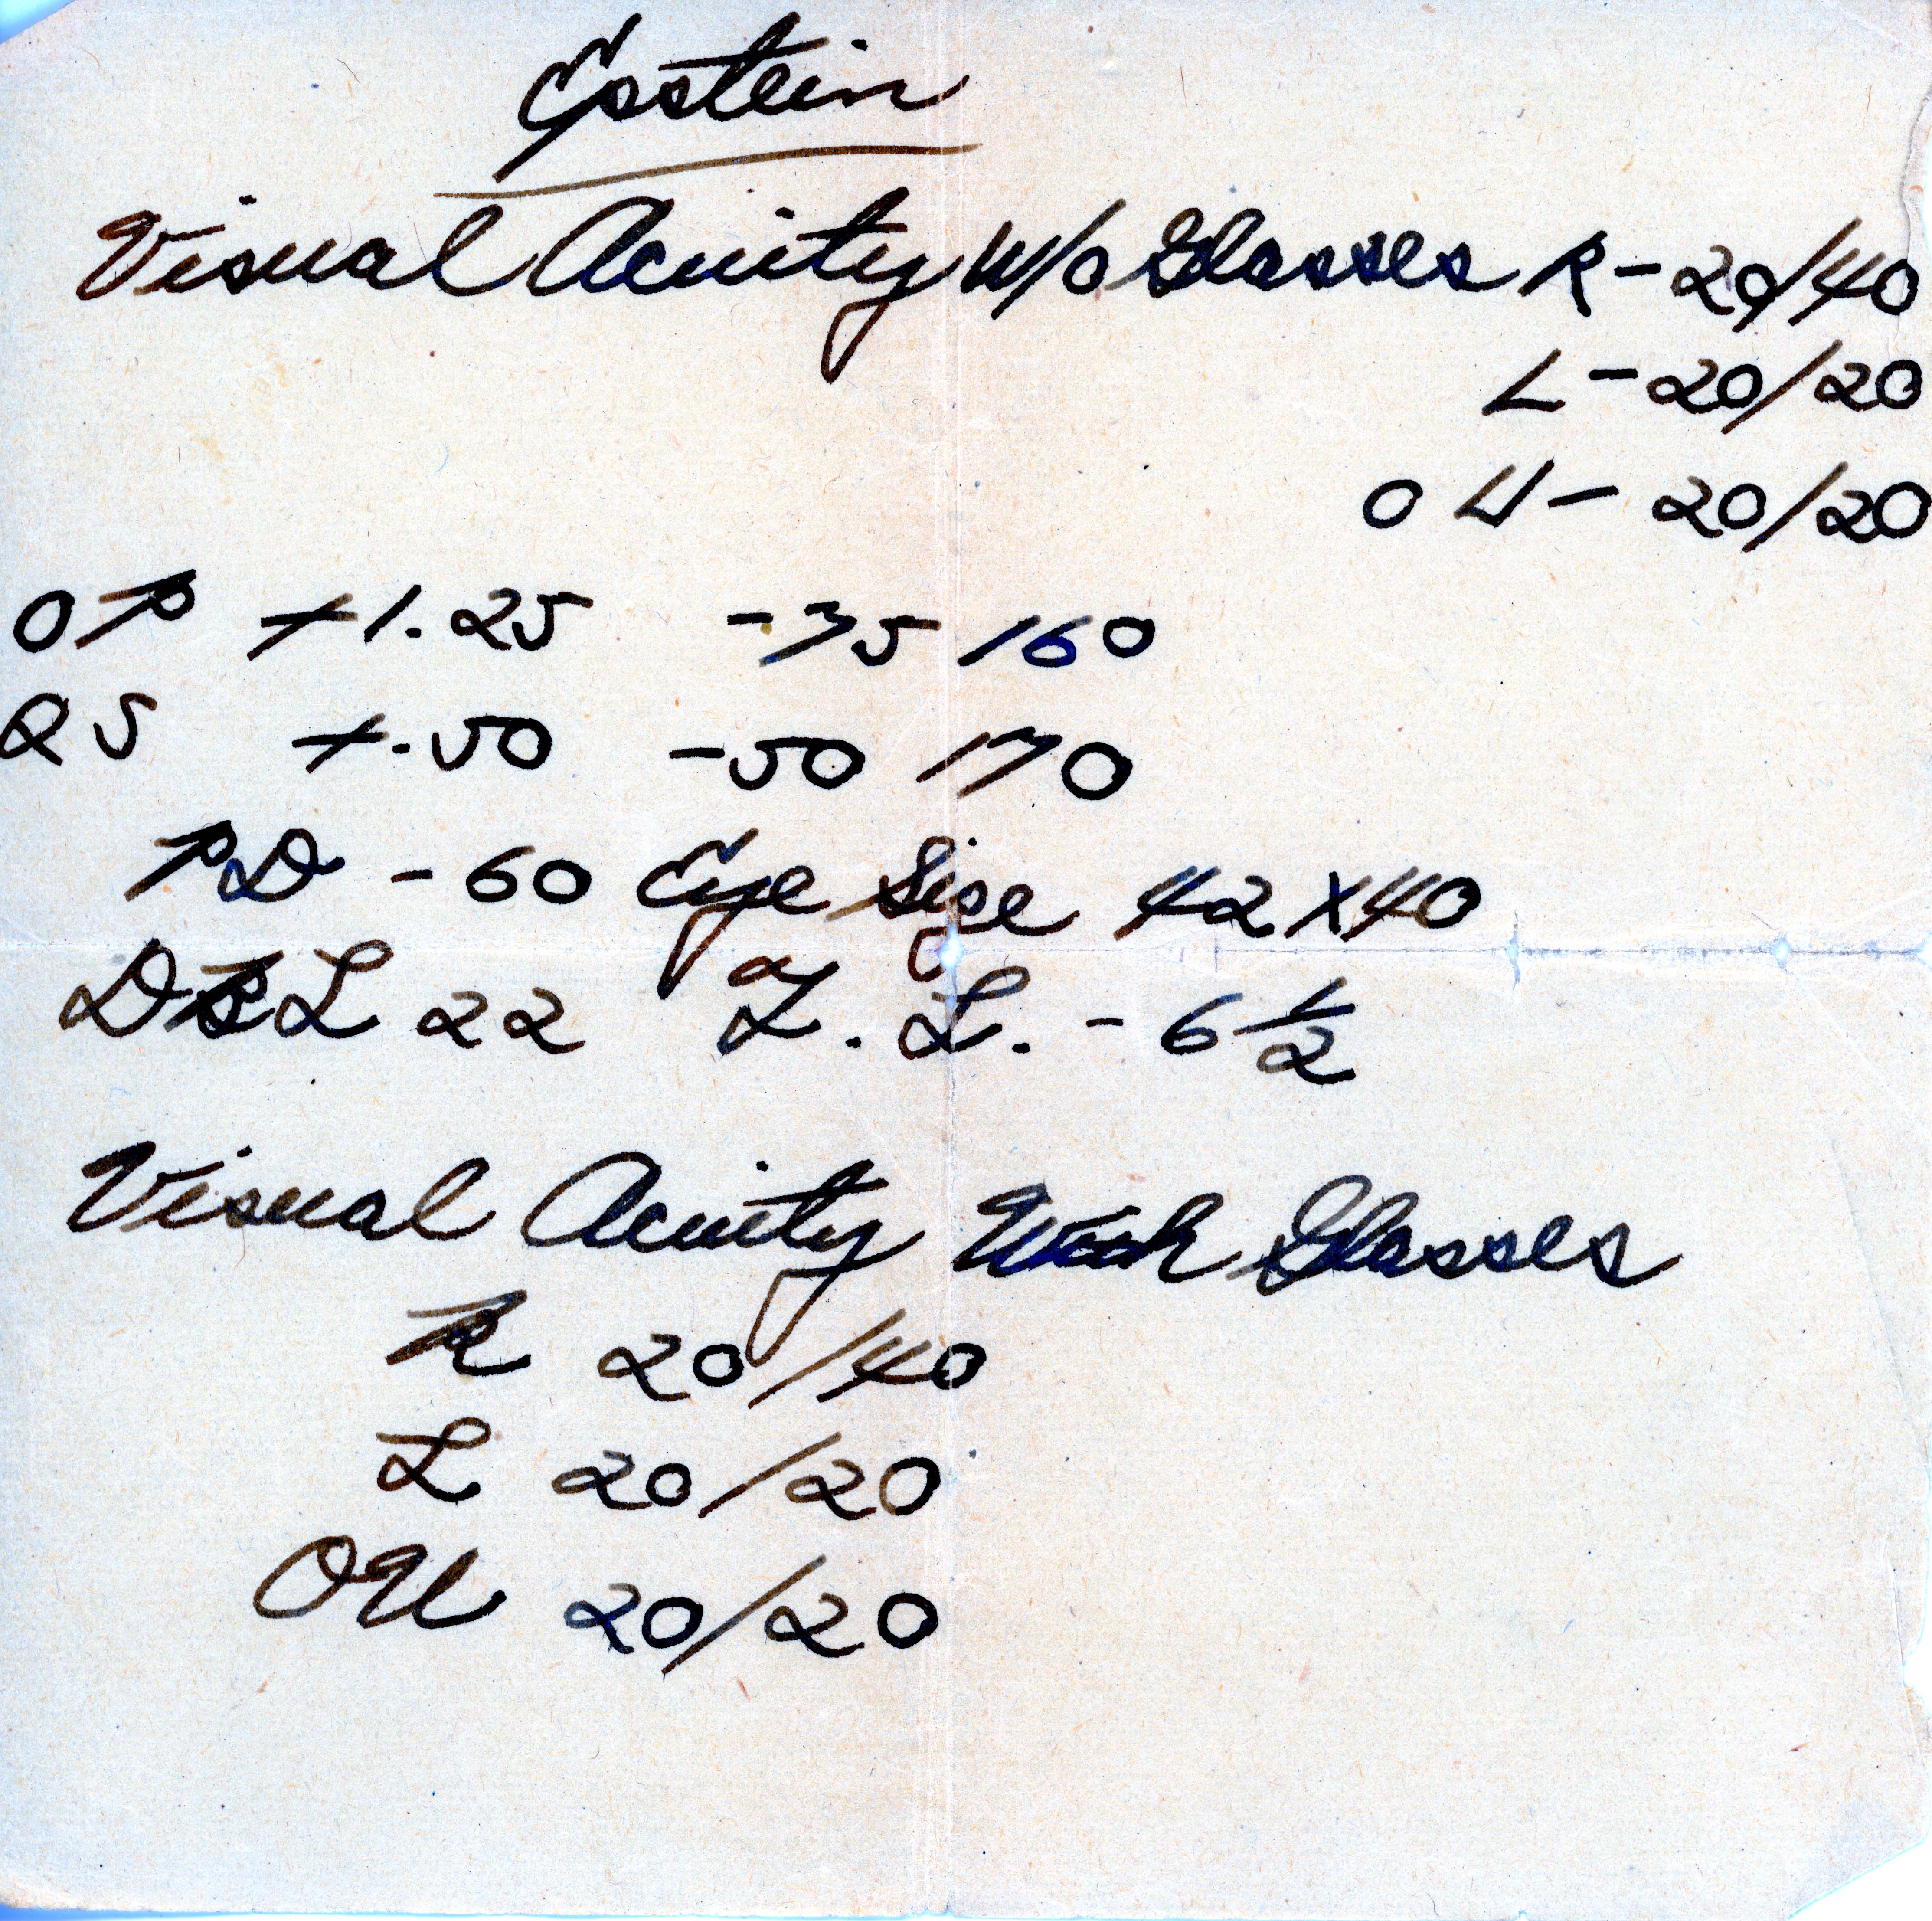 Epstein
Visual Acuity W/o Glasses R - 20/40
L - 20/20
OU - 20/20
OD +1.25 -75 160
OS +.50 -50 170
PD - 60 Eye Size 42 X 40
DBL 22 T.L. - 6 1/2
Visual Acuity With Glasses
R 20/40
L 20/20
OU 20/20